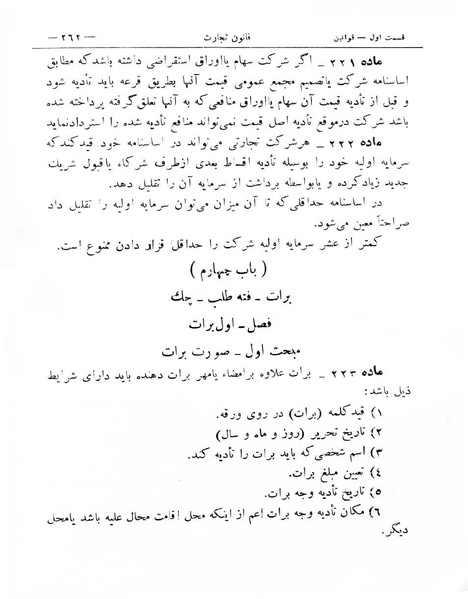 قسمت اول — قوانین قانون تجارت — ۲۶۲ —
ماده ۲۲۱ ـ اگر شرکت سهام یااوراق استقراضی داشته باشد که مطابق
اساسنامه شرکت یاتصمیم مجمع عمومی قیمت آنها بطریق قرعه باید تأدیه شود
و قبل از تأدیه قیمت آن سهام یااوراق منافعی‌که به آنها تعلق‌گرفته پرداخته شده
باشد شرکت درموقع تأدیه اصل قیمت نمی‌تواند منافع تأدیه شده را استردادنماید
ماده ۲۲۲ ـ هرشرکت تجارتی می‌تواند در اساسنامه خود قیدکندکه
سرمایه اولیه خود را بوسیله تأدیه اقساط بعدی ازطرف شرکاء یاقبول شریك
جدید زیادکرده و یابواسطه برداشت از سرمایه آن را تقلیل دهد.
در اساسنامه حداقلی‌که تا آن میزان می‌توان سرمایه اولیه را تقلیل داد
صراحتاً معین می‌شود.
کمتر از عشر سرمایه اولیه شرکت را حداقل قراد دادن ممنوع است.
( باب چهارم )
برات ـ فته طلب ـ چك
فصل ـ اول برات
مبحث اول ـ صورت برات
ماده ۲۲۳ ـ برات علاوه برامضاء یامهر برات دهنده باید دارای شرایط
ذیل باشد:
۱) قیدکلمه (برات) در روی ورقه.
۲) تاریخ تحریر (روز و ماه و سال)
۳) اسم شخصی‌که باید برات را تأدیه کند.
٤) تعیین مبلغ برات.
٥) تاریخ تأدیه وجه برات.
٦) مکان تأدیه وجه برات اعم از اینکه محل اقامت محال علیه باشد یامحل
دیگر.